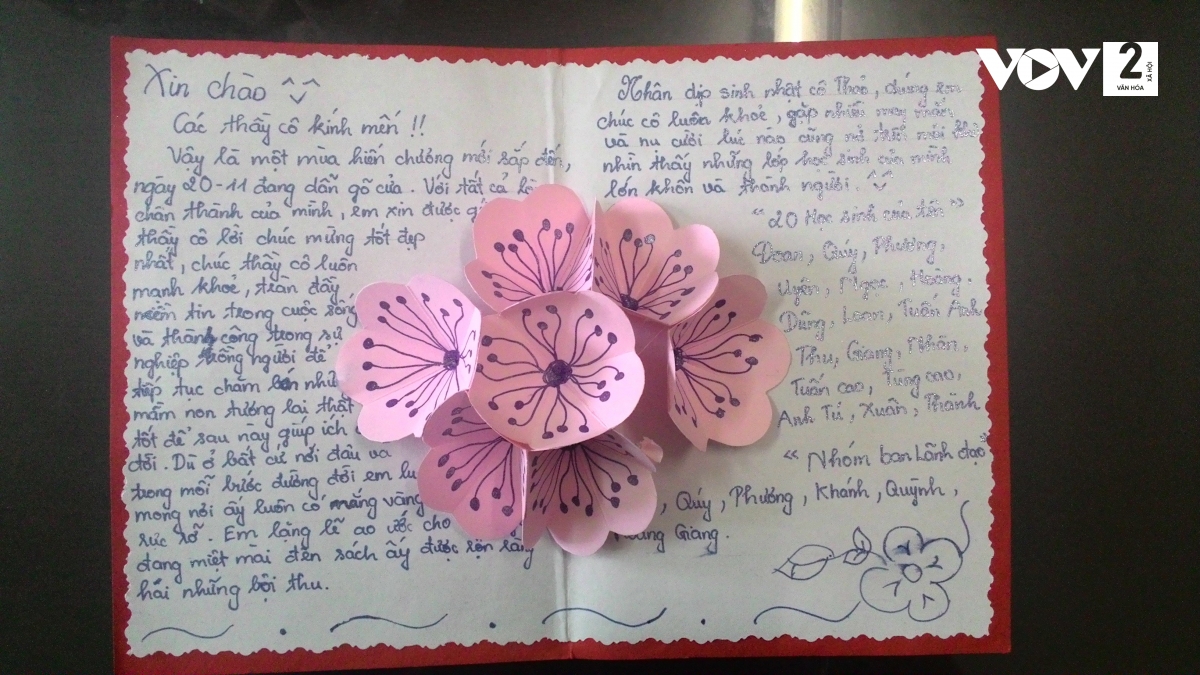 Xin chào ^^
Các thầy cô kính mến !!
Vậy là một mùa hiến chương mới sắp đến,
ngày 20-11 đang dần gõ cửa. Với tất cả
chân thành của mình, em xin được
thầy cô lời chúc mừng tốt đẹp
nhất, chúc thầy cô luôn
mạnh khoẻ, tràn đầy
niềm tin trong cuộc sống
và thành công trong sự
nghiệp trồng người để
tiếp tục chăm bón
mầm non tương lai thật
tốt để sau này giúp ích
đời. Dù ở bất cứ nơi đâu và
trong mỗi bước đường đời em
mong nơi ấy luôn có nắng vàng
rực rỡ. Em lặng lẽ ao ước cho
đang miệt mai đèn sách ấy được rộn ràng
hái những bội thu.
Nhân dịp sinh nhật cô Thảo, chúng em
chúc cô luôn khoẻ, gặp nhiều may mắn
và nụ cười lúc nào cũng nở trên môi
nhìn thấy những lớp học sinh của mình
lớn khôn và thành người. ^^
"20 Học sinh của
Đoan, Quý, Phương,
Uyên, Ngọc, Hoàng.
Dũng, Loan, Tuấn Anh
Thu, Giang, Nhân,
Tuấn cao, Tùng cao,
Anh Tú, Xuân, Thành
"Nhóm ban Lãnh đạo"
, Quý, Phương, Khánh, Quỳnh,
Giang.
12
A
7
VOV2
VĂN HÓA
XÃ HỘI